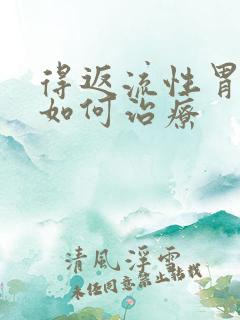 得返流性胃
如何治療
清風浮雲
未经同意禁止转载